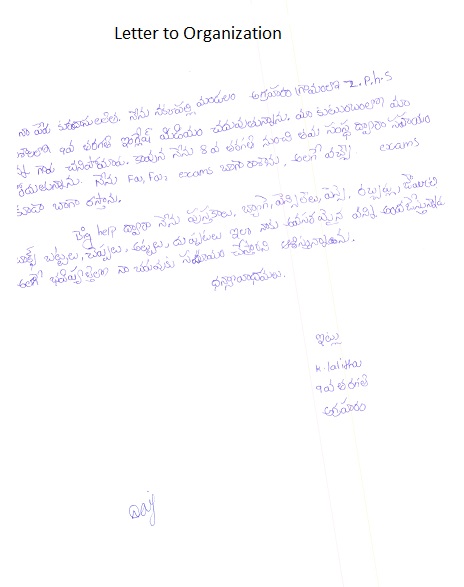 Letter to Organization
నా పేరు లలిత. నేను మండలం అగ్రహారం గ్రామంలో Z.P.H.S
9వ తరగతి ఇంగ్లీష్ మీడియం చదువుతున్నాను. మా కుటుంబంలో మా
నాన్న గారు చనిపోయారు. నేను 8వ తరగతి నుంచి ఈ సంస్థ ద్వారా సహాయం
పొందుతున్నాను. నేను Fa1, Fa2, exams బాగా రాశాను. అలాగే వచ్చే exams
కూడా బాగా రాస్తాను.
Big help ద్వారా నేను పుస్తకాలు, బ్యాగ్, పెన్సిల్లు, పెన్స్, రబ్బర్లు,
బట్టలు, చెప్పులు, దుప్పటలు ఇలా నాకు అవసరమైన వన్నీ అందచేస్తున్నారు.
అలాగే భవిష్యత్తులో నా చదువుకు సహాయం చేస్తారని ఆశిస్తున్నాను.
ధన్యవాదములు.
ఇట్లు
K. lalitha
9వ తరగతి
అగ్రహారం